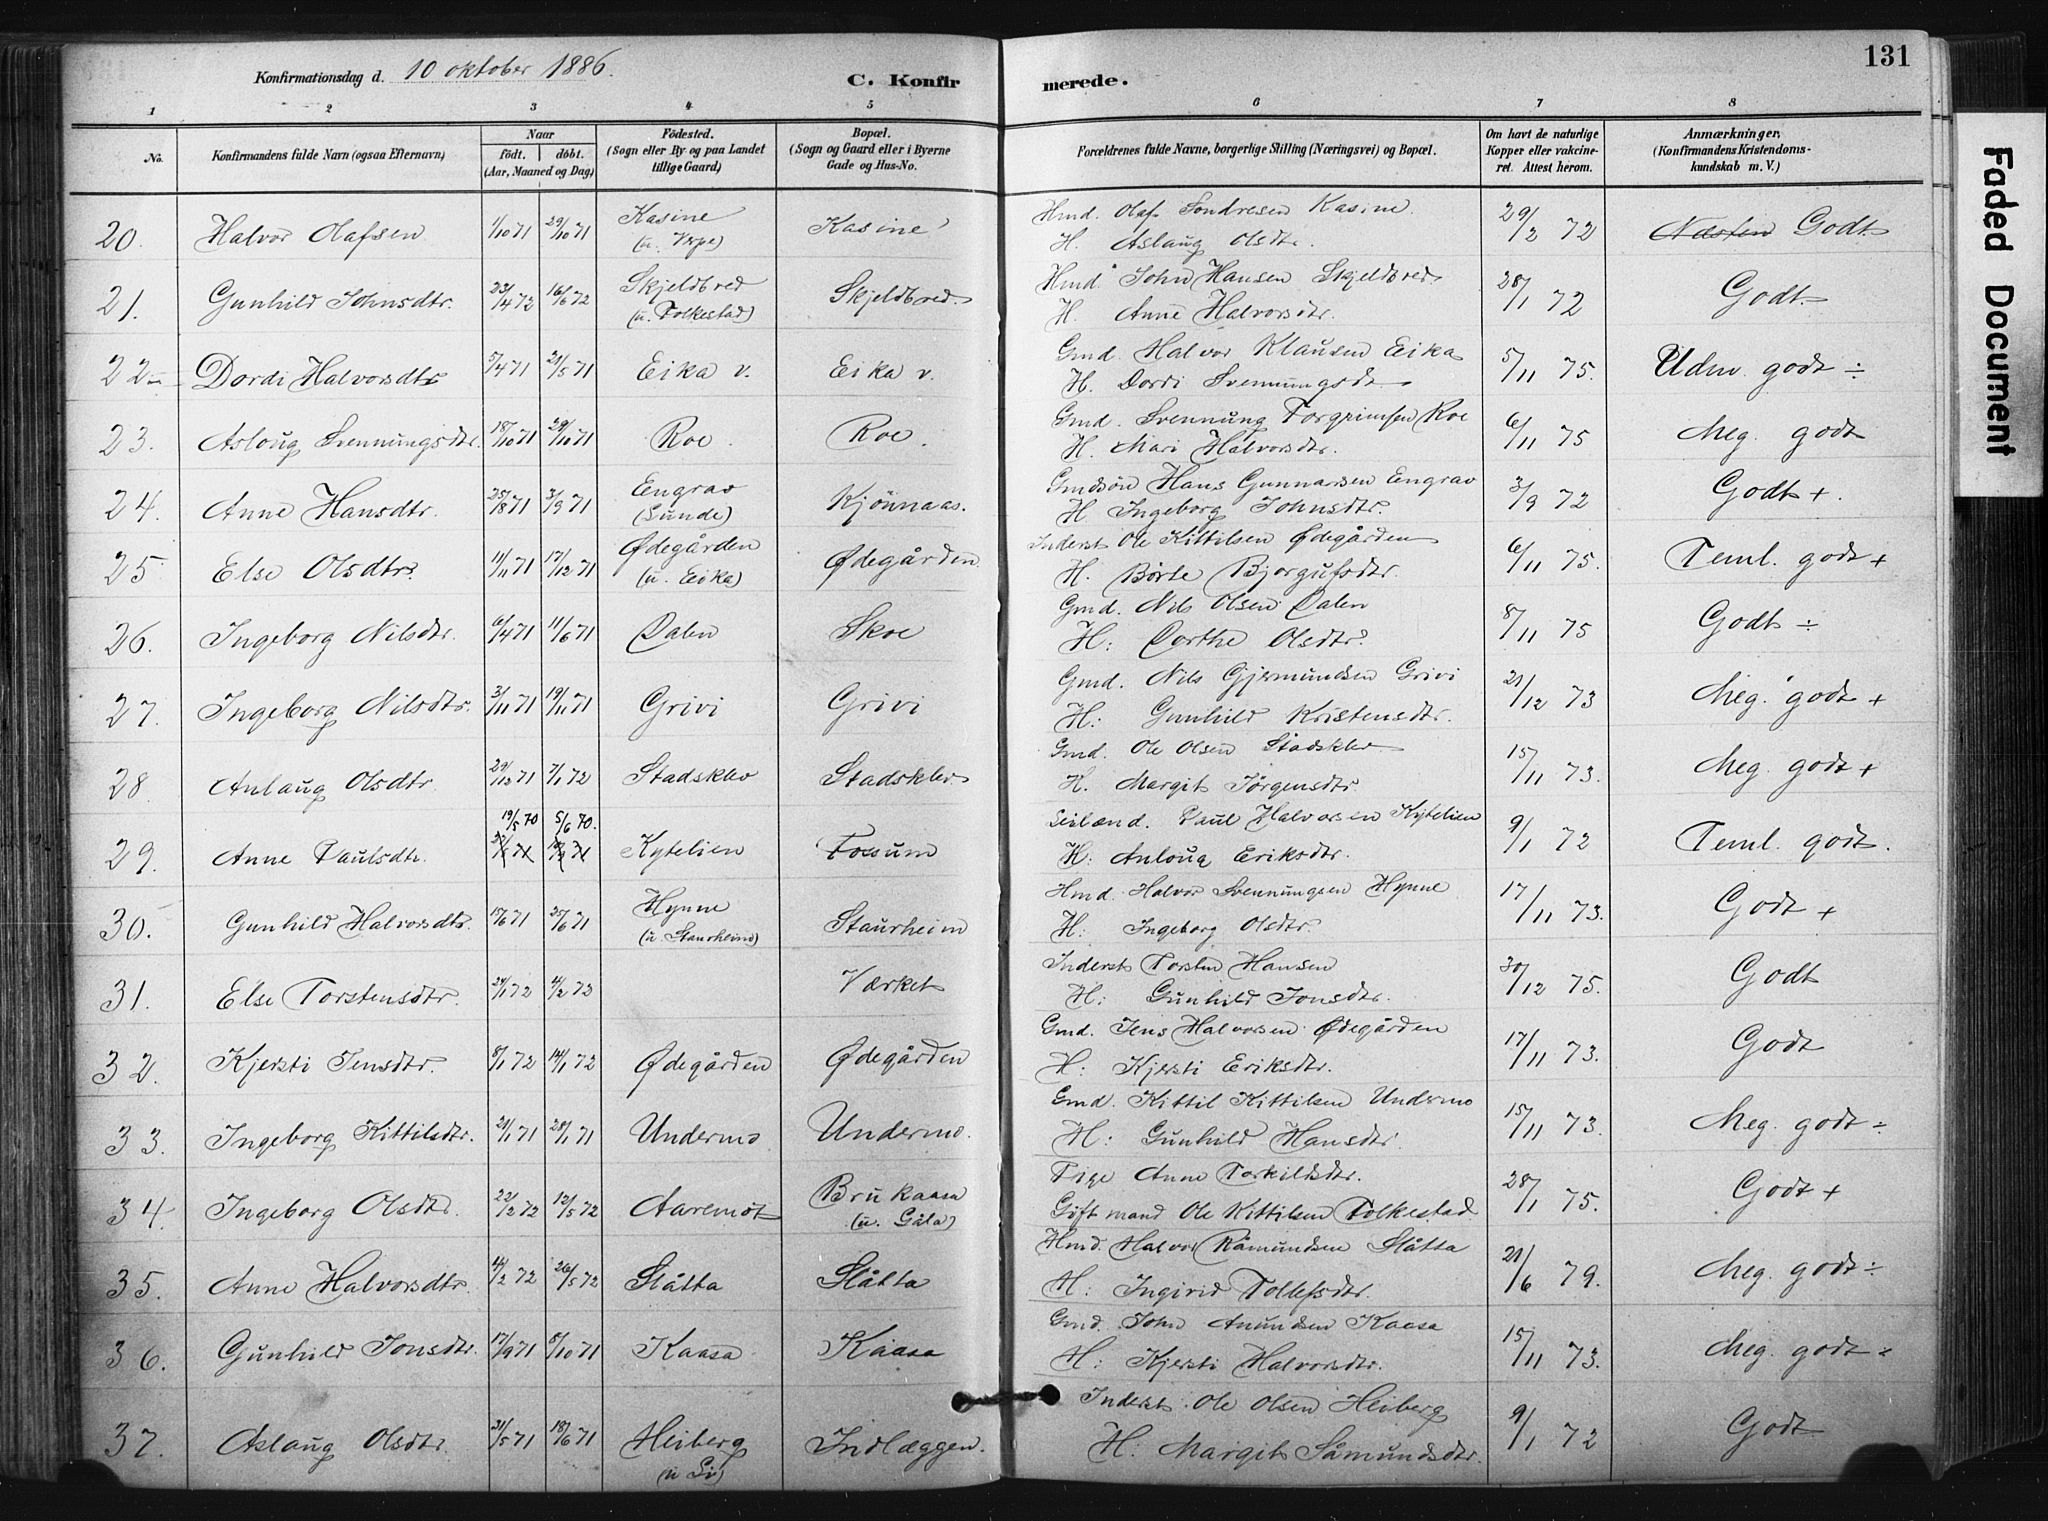 131
Konfirmationsdag d. 10 oktober 1886.
C. Konfirmerede.
1 2 3 4 5 6 7 8
No.
Konfirmandens fulde Navn (ogsaa Efternavn)
Naar
födt. döbt.
(Aar, Maaned og Dag)
Födested.
(Sogn eller By og paa Landet
tillige Gaard)
Bopæl.
(Sogn og Gaard eller i Byerne
Gade og Hus-No.
Forældrenes fulde Navne, borgerlige Stilling (Næringsvei) og Bopæl.
Om havt de naturlige
Kopper eller vakcine-
ret. Attest herom.
Anmærkninger.
(Konfirmandens Kristendoms-
kundskab m. V.)
Faded Document
20. Halvor Olafsen 1/10 71 29/10 71 Kasine (u. Vrpe) Kasine Hmd. Olaf Sondresen Kasine. 29/2 72 Næsten Godt
H. Aslaug Olsdtr.
21. Gunhild Johnsdtr. 23/4 72 16/6 72 Skjeldbred (u. Folkestad) Skjeldbred Hmd. John Hansen Skjeldbred 28/1 72 Godt
H. Anne Halvorsdtr.
22 Dordi Halvorsdtr 5/4 71 21/5 71 Eika v. Eika v. Gmd. Halvor Klausen Eika 5/11 75. Udm. godt ÷
H. Dordi Svennungsdt.
23. Aslaug Svennungsdtr. 18/10 71 29/10 71 Roe Roe. Gmd. Svennung Torgrimsen Roe 6/11 75 Meg. godt
H. Mari Halvorsdtr.
24. Anne Hansdtr. 25/8 71 3/9 71 Engrav (Lunde) Kjönnaas. Gmdsön Hans Gunnarsen Engrav 3/9 72 Godt +.
H Ingeborg Johnsdtr.
25 Else Olsdtr. 11/11 71 17/12 71 Ødegården (u. Eika) Ødegården Inderst Ole Kittilsen Ødegården 6/11 75. Teml. godt +
H. Börte Bjorgufsdtr.
26. Ingeborg Nilsdtr. 6/4 71 11/6 71 Dalen Skoe Gmd. Nils Olsen Dalen 8/11 75 Godt ÷
H: Dorthe Olsdtr.
27. Ingeborg Nilsdtr. 3/11 71 19/11 71 Grivi Grivi Gmd. Nils Gjermundsen Grivi 21/12 73 Meg. godt +
H: Gunhild Kristensdtr.
28 Anlaug Olsdtr 29/12 71 7/1 72 Stadsklev Stadsklev Gmd. Ole Olsen Stadsklev 15/11 73. Meg. godt +
H. Margit Jörgensdtr
29. Anne Paulsdtr. 19/5 70 5/6 70. Kytelien Fossum Leilænd. Paul Halvorsen Kytelien 9/1 72 Teml. godt.
H: Anloug Eriksdtr.
30. Gunhild Halvorsdtr. 15/6 71 25/6 71 Hynne (u Staurheim) Staurheim Hmd. Halvor Svennungsen Hynne 17/11 73. Godt +
H: Ingeborg Olsdtr.
31. Else Torstensdtr. 24/1 72 4/2 72 Værket Inderst Torsten Hansen 30/12 75. Godt
H: Gunhild Jonsdtr.
32. Kjersti Jensdtr. 8/1 72 14/1 72 Ødegården Ødegården Gmd. Jens Halvorsen Ødegården 17/11 73. Godt
H: Kjersti Eriksdtr.
33. Ingeborg Kittilsdtr. 21/1 71 28/1 71 Undermo Undermo. Gmd. Kittil Kittilsen Undermo 15/11 73. Meg. godt ÷
H: Gunhild Hansdtr.
34. Ingeborg Olsdtr. 22/2 72 12/5 72 Aaremot Brukaasa (u. Gåla) Pige Anne Torkildsdtr. 28/1 75. Godt +
Gift mand Ole Kittilsen Folkestad
35. Anne Halvorsdtr. 14/2 72 26/5 72 Slåtta Slåtta Hmd. Halvor Råmundsen Slåtta 21/6 79. Meg. godt ÷
H: Ingirid Tollefsdtr.
36. Gunhild Jonsdtr. 17/9 71 8/10 71 Kaasa Kaasa Gmd. John Anundsen Kaasa 15/11 73. Meg. godt ÷
H: Kjersti Halvorsdtr.
37. Aslaug Olsdtr. 31/5 71 18/6 71 Heiberg (u Li) Indlæggen. Inderst. Ole Olsen Heiberg 9/1 72 Godt
H: Margit Såmundsdtr.